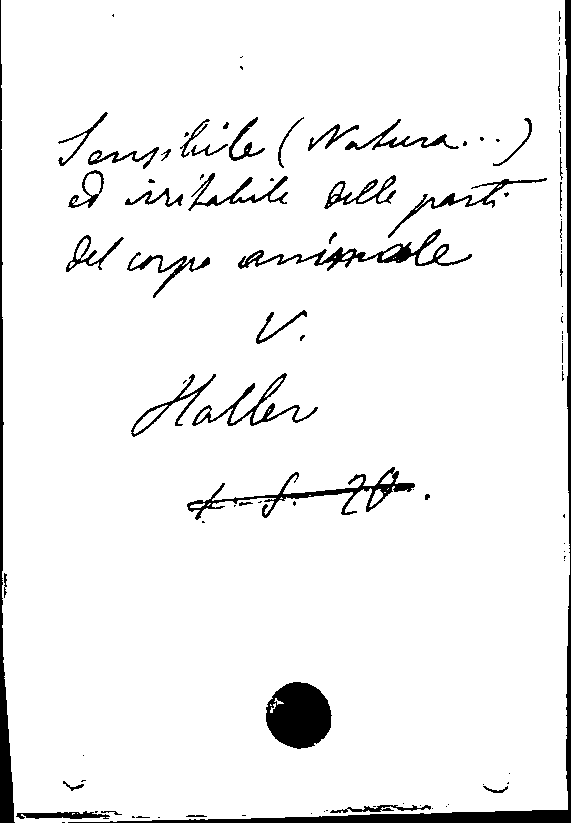 Sensibile (Natura...)
ed irritabile delle parti
del corpo animale
V.
Haller